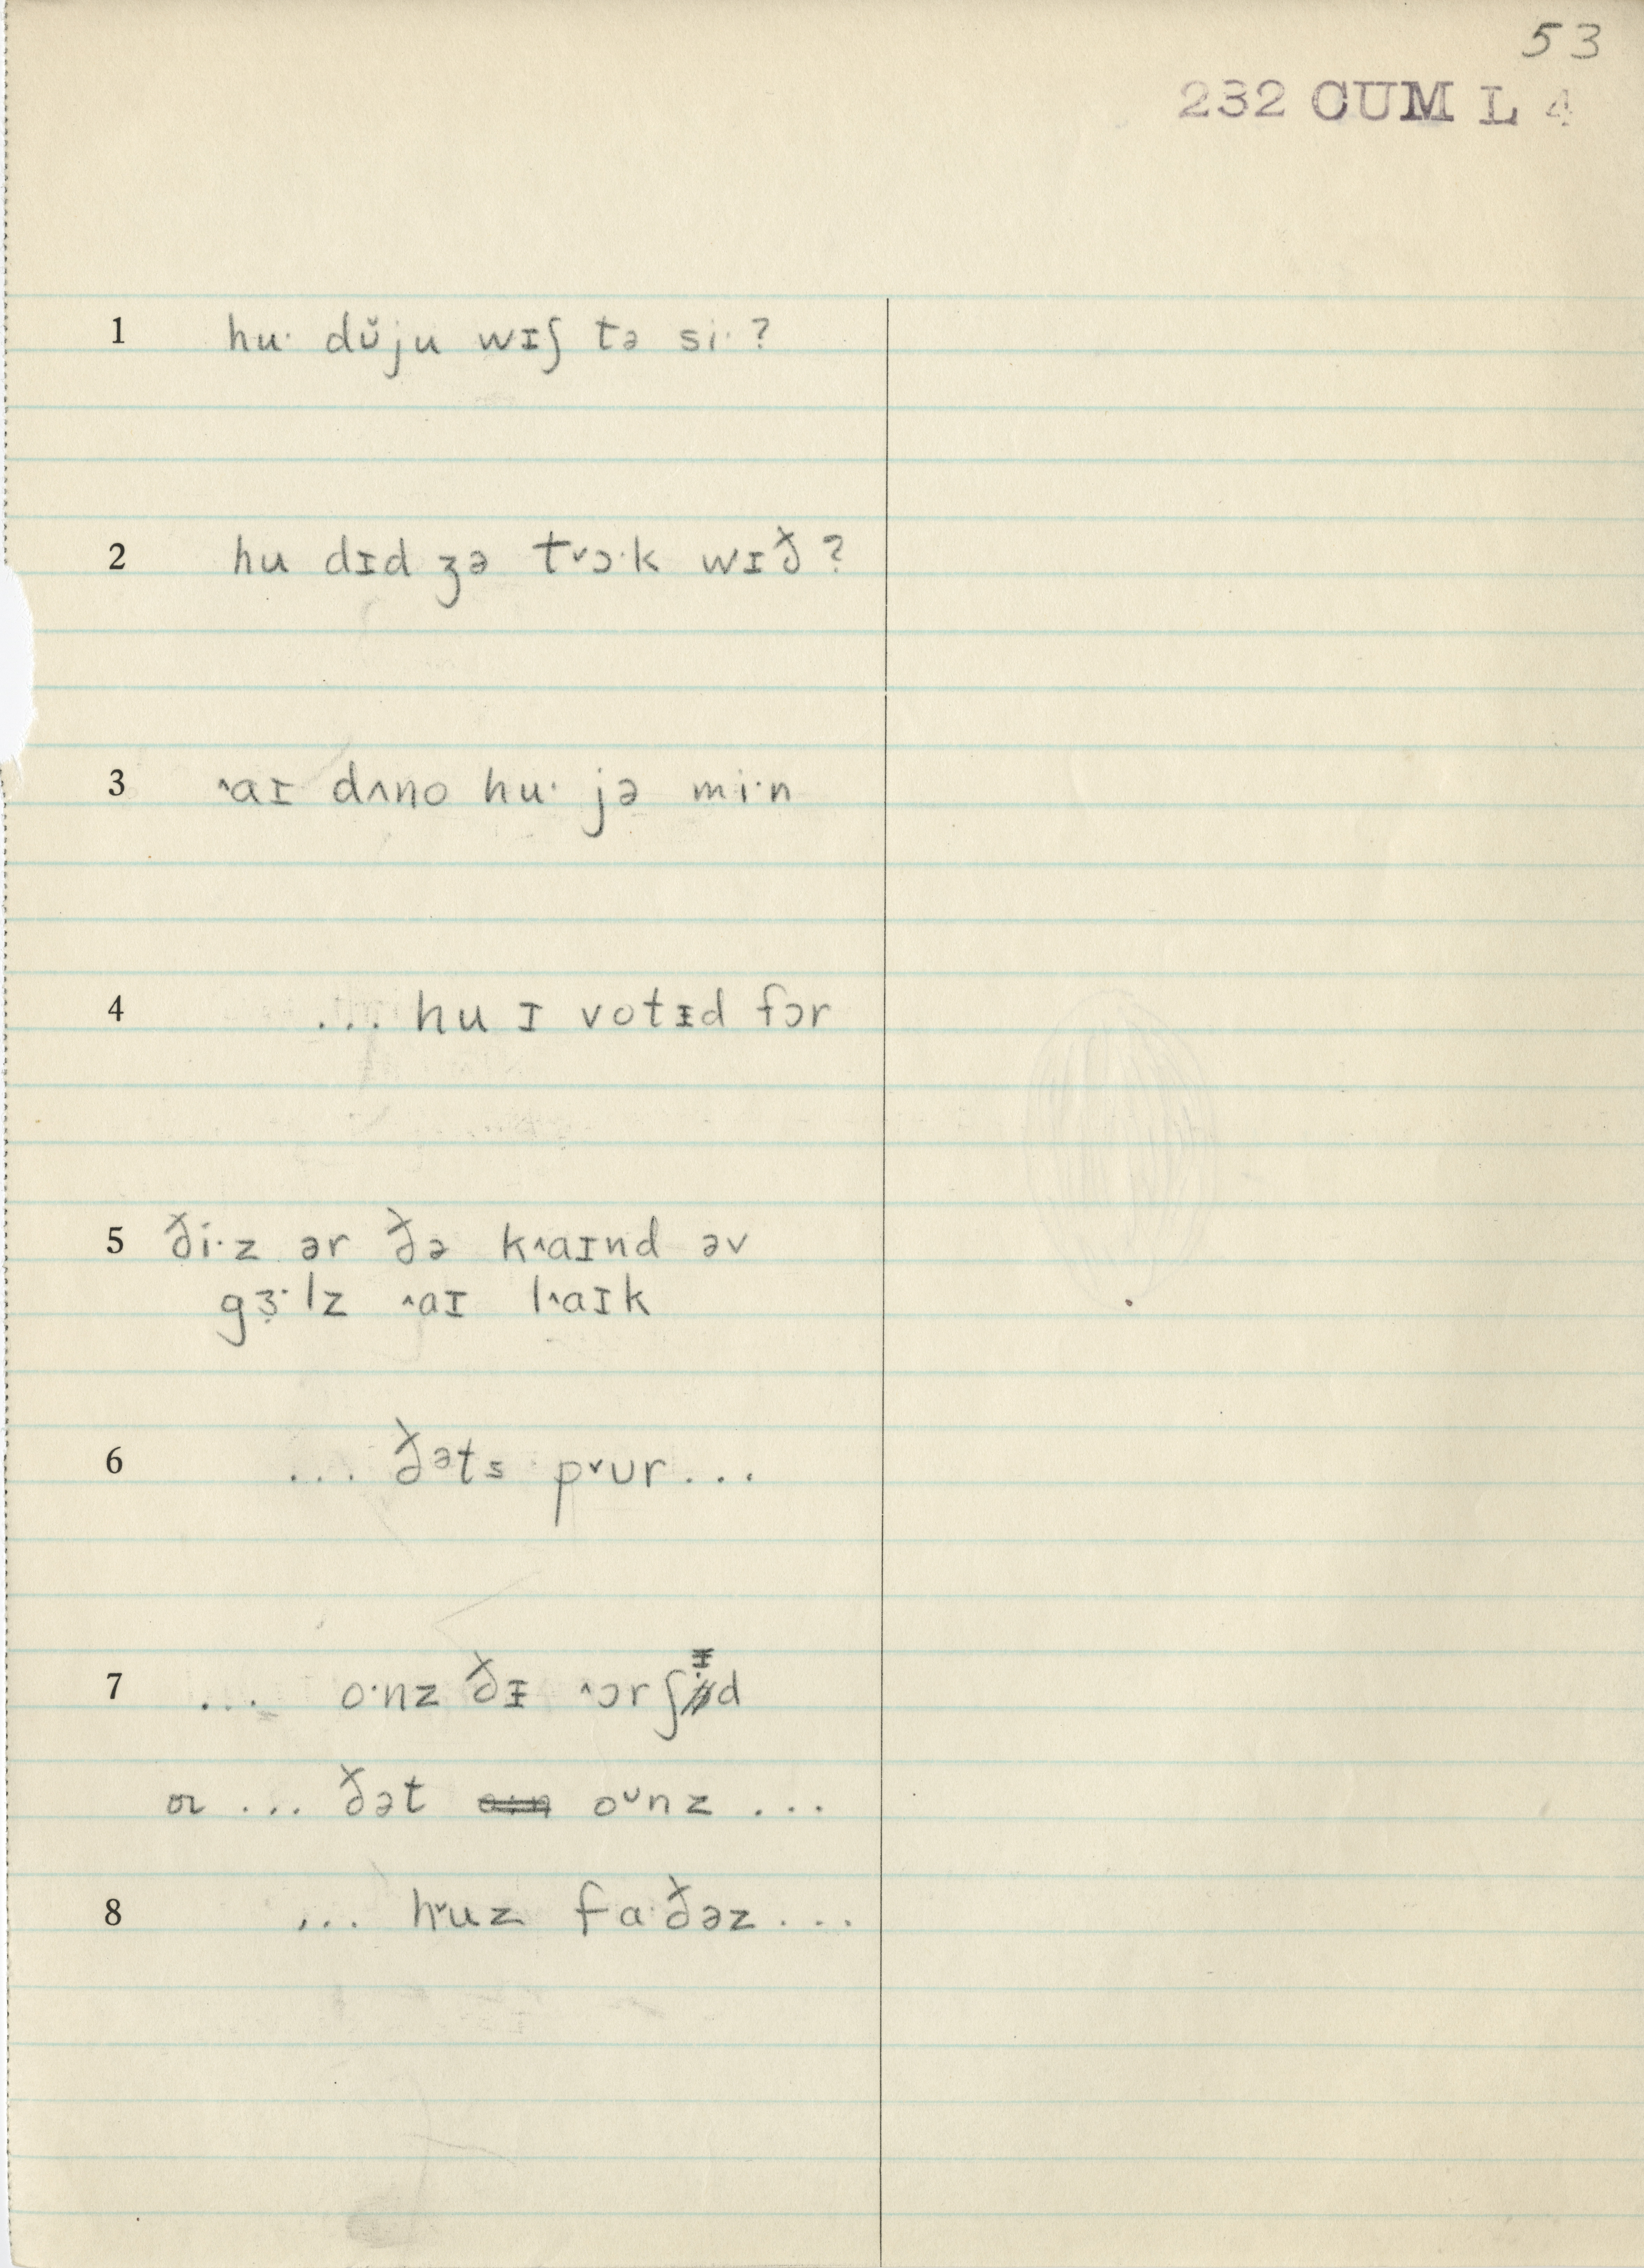 53
232 CUM L 4
1 hu· dŭju wɪʃ tə si·?
2 hu dɪd ʒə t˅ɔ·k wɪð?
3 ˄aɪ dʌno hu· jə mi·n
4 ... hu ɪ votɪd fɔr
5 ði·z ər ðə k˄aɪnd əv
gɜ·lz ˄aɪ l˄aɪk
6 ... ðəts p˅ʊr...
7 ... o·nz ðɪ ˄ɔrʃɪd
or ... ðət o·n oᵘnz ...
8 ... h˅uz fa·ðəz...